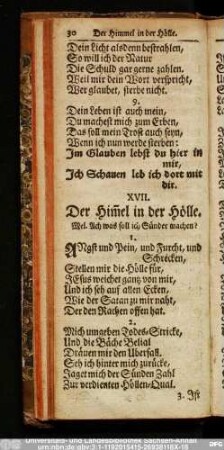 30 Der Himmel in der Hölle.
Dein Licht alsdenn bestrahlen,
So will ich der Natur
Die Schuld gar gerne zahlen.
Weil mir dein Wort verspricht,
Wer glaubet, sterbe nicht.
9.
Dein Leben ist auch mein,
Du machest mich zum Erben,
Das soll mein Trost auch seyn,
Wenn ich nun werde sterben:
Im Glauben lebst du hier in
mir,
Ich Schauen leb ich dort mit
dir.
XVII.
Der Him̅el in der Hölle.
Mel. Ach was soll ich Sünder machen?
1.
ANgst und Pein, und Furcht, und
Schrecken,
Stellen mir die Hölle für,
JEsus weichet ganz von mir,
Und ich seh auf allen Ecken,
Wie der Satan zu mir naht,
Der den Rachen offen hat.
2.
Mich umgeben Todes-Stricke,
Und die Bäche Belial
Dräuen mir den Uberfall,
Seh ich hinter mich zurücke,
Jaget mich der Sünden Zahl
Zur verdienten Höllen-Qual.
3. Ist
Universitäts- und Landesbibliothek Sachsen-Anhalt